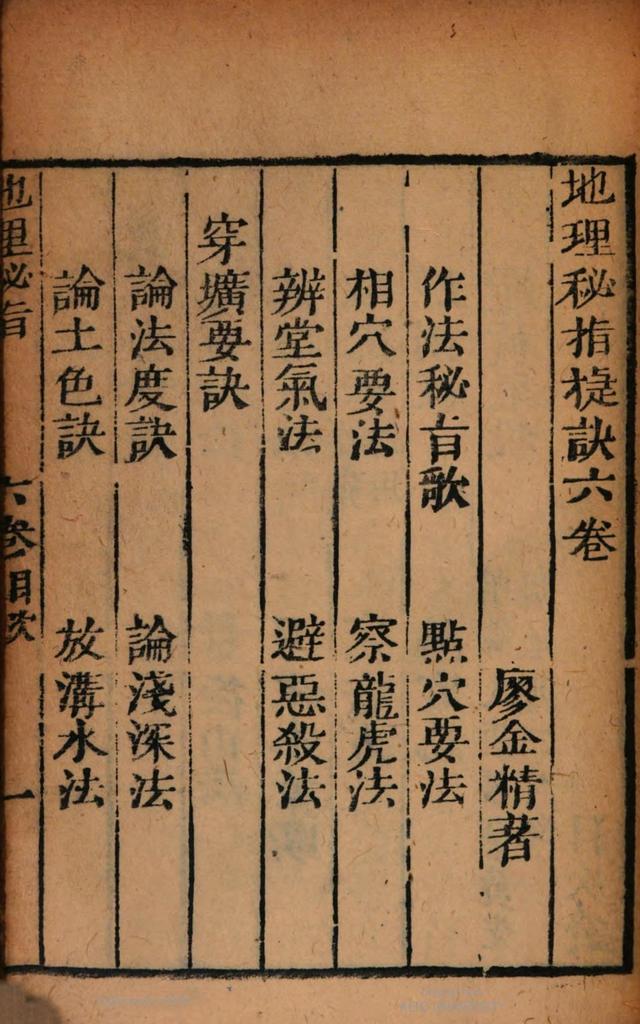 地理秘指㨗訣六卷
廖金精著
作法秘旨歌　點穴要法
相穴要法　察龍虎法
辨堂氣法　避惡殺法
穿壙要訣
論法度訣　論淺深法
論土色訣　放溝水法
地理秘旨　六卷目次　一